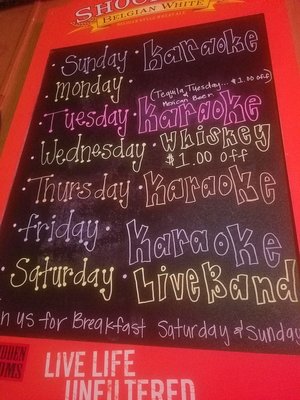 SHOC
BELGIAN WHITE
BELGIAN-STYLE WHEAT ALE
• Sunday • Karaoke
• Monday
(Tequila Tuesday... $1.00 off)
& Mexican Beer
• Tuesday • Karaoke
• Wednesday • Whiskey
$1.00 off
• Thursday • Karaoke
• Friday • Karaoke
• Saturday • Live Band
n us for Breakfast Saturday & Sunday
LIVE LIFE
UNFILTERED